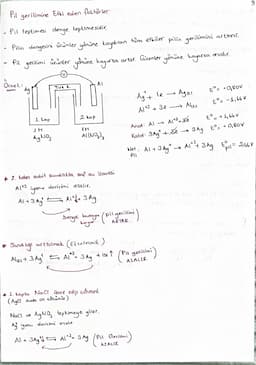 Pil gerilimine Etki eden faktörler
- Pil tepkimesi denge tepkimesidir.
- Pilin dengesini ürünler yönüne kaydıran tüm etkiler pilin gerilimini arttırır.
- Pil gerilimi ürünler yönüne kayarsa artar. Girenler yönüne kayarsa azalır.
Örnek:
Ag
V
Al
Tuz K.
1. kap
2. kap
1 M
AgNO3
1M
Al(NO3)3
Ag+ + 1e → Ag(k) E° = +0,80V
Al+3 + 3e → Al(k) E° = -1,66V
Anot: Al → Al+3 + 3e E° = +1,66V
Katot: 3Ag+ + 3e → 3Ag E° = +0,80V
Net: Al + 3Ag+ → Al+3 + 3Ag E°pil = 2,46V
Pil
* 2. kaba sabit sıcaklıkta saf su ilavesi
Al+3 iyonu derişimi azalır.
Al + 3Ag+ ⇌ Al+3 + 3Ag
Denge buraya (pil gerilimi)
kayar ARTAR
* Sıcaklığı arttırmak (Ekzotermik)
Al(k) + 3Ag+ ⇌ Al+3 + 3Ag + ısı (Pil gerilimi)
AZALIR
* 1. kaba NaCl ilave edip çökme
NaCl ve AgNO3 tepkimeye girer.
Ag+ iyonu derişimi azalır
Al + 3Ag+ ⇌ Al+3 + 3Ag (Pil Gerilimi)
AZALIR